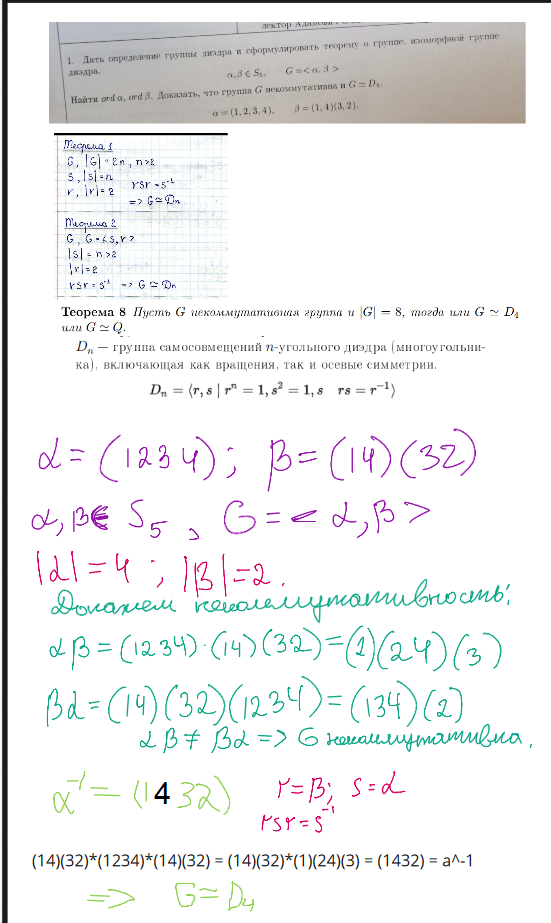 лектор Адамова
1. Дать определение группы диэдра и сформулировать теорему о группе, изоморфной группе
диэдра.
α, β ∈ S₅, G = < α, β >
Найти ord α, ord β. Доказать, что группа G некоммутативна и G ≃ D₄.
α = (1, 2, 3, 4), β = (1, 4)(3, 2).
Теорема 1
G, |G| = 2n, n>2
s, |s| = n
r, |r| = 2 rsr = s⁻¹
=> G ≃ Dn
Теорема 2
G, G = <s, r>
|s| = n > 2
|r| = 2
rsr = s⁻¹ => G ≃ Dn
Теорема 8 Пусть G некоммутативная группа и |G| = 8, тогда или G ≃ D₄
или G ≃ Q.
Dₙ — группа самосовмещений n-угольного диэдра (многоугольни-
ка), включающая как вращения, так и осевые симметрии.
Dₙ = ⟨r, s | rⁿ = 1, s² = 1, s rs = r⁻¹⟩
α = (1234); β = (14)(32)
α, β ∈ S₅, G = < α, β >
|α| = 4; |β| = 2.
Докажем некоммутативность:
αβ = (1234)·(14)(32) = (1)(24)(3)
βα = (14)(32)(1234) = (134)(2)
αβ ≠ βα => G некоммутативна.
α⁻¹ = (1432) r = β; s = α
rsr = s⁻¹
(14)(32)*(1234)*(14)(32) = (14)(32)*(1)(24)(3) = (1432) = a^-1
=> G ≃ D₄